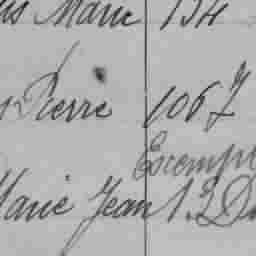 Marie 134
Pierre 106 7
Exempt
Marie Jean 13 D